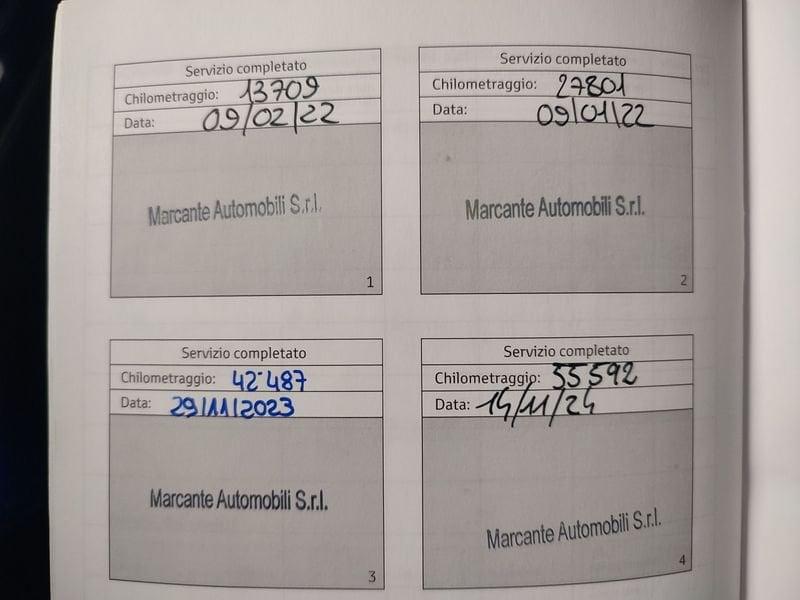 Servizio completato
Chilometraggio: 13709
Data: 09/02/22
Marcante Automobili S.r.l.
1
Servizio completato
Chilometraggio: 27801
Data: 09/01/22
Marcante Automobili S.r.l.
2
Servizio completato
Chilometraggio: 42·487
Data: 29/11/2023
Marcante Automobili S.r.l.
3
Servizio completato
Chilometraggio: 55592
Data: 14/11/24
Marcante Automobili S.r.l.
4